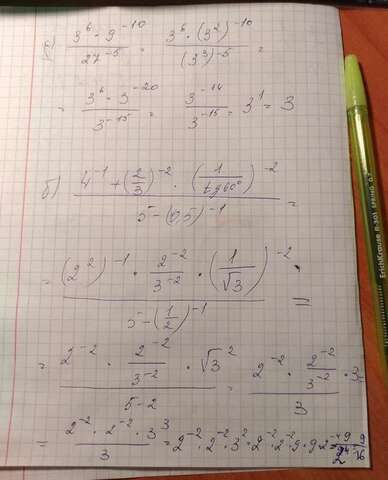 а) (3^6 · 9^-10)/(27^-5) = (3^6 · (3^2)^-10)/((3^3)^-5) =
= (3^6 · 3^-20)/(3^-15) = (3^-14)/(3^-15) = 3^1 = 3
б) (4^-1 + (2/3)^-2 · (1/tg60°)^-2)/(5 - (0,5)^-1) =
= ((2^2)^-1 · (2^-2)/(3^-2) · (1/√3)^-2)/(5 - (1/2)^-1) =
= (2^-2 · (2^-2)/(3^-2) · √3^2)/(5 - 2) = (2^-2 · (2^-2)/(3^-2) · 3)/3 =
= (2^-2 · 2^-2 · 3^3)/3 = 2^-2 · 2^-2 · 3^2 = 2^-2 · 2^-2 · 9
ErichKrause